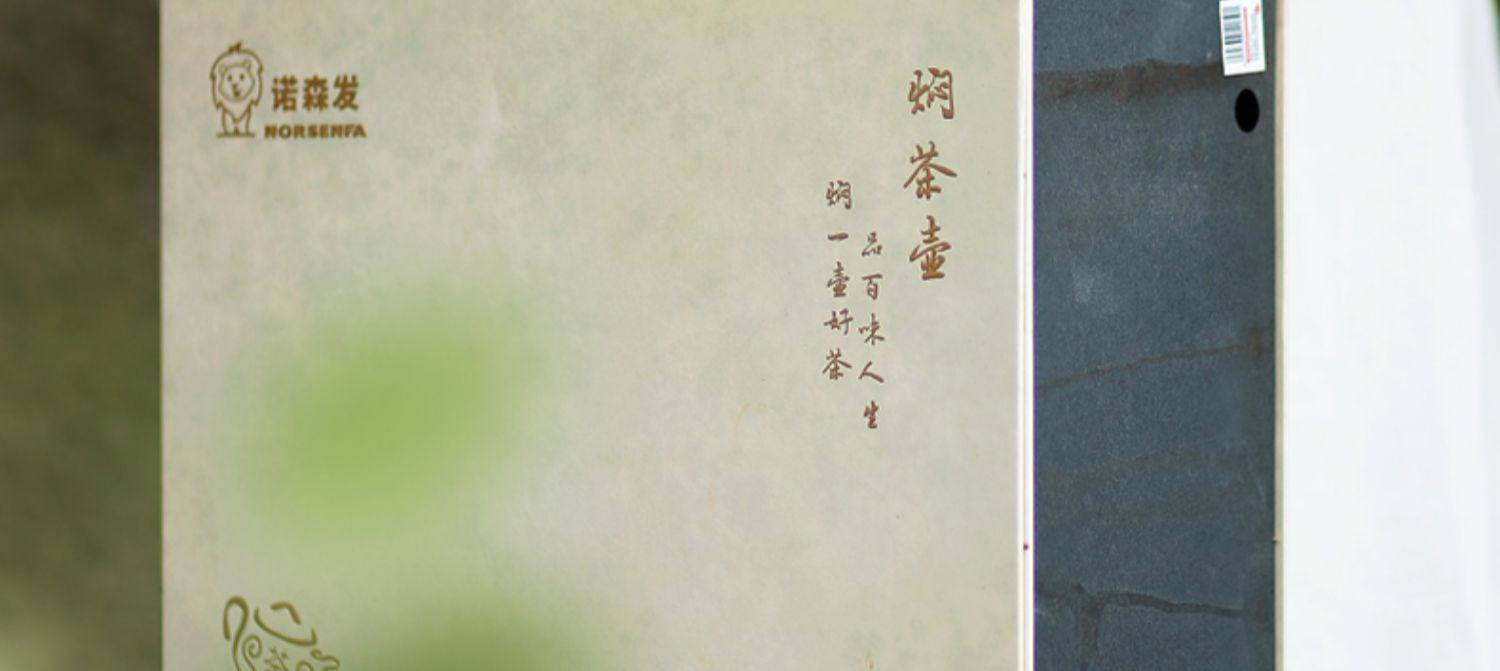 诺森发
NORSENFA
焖茶壶
品百味人生
焖一壶好茶